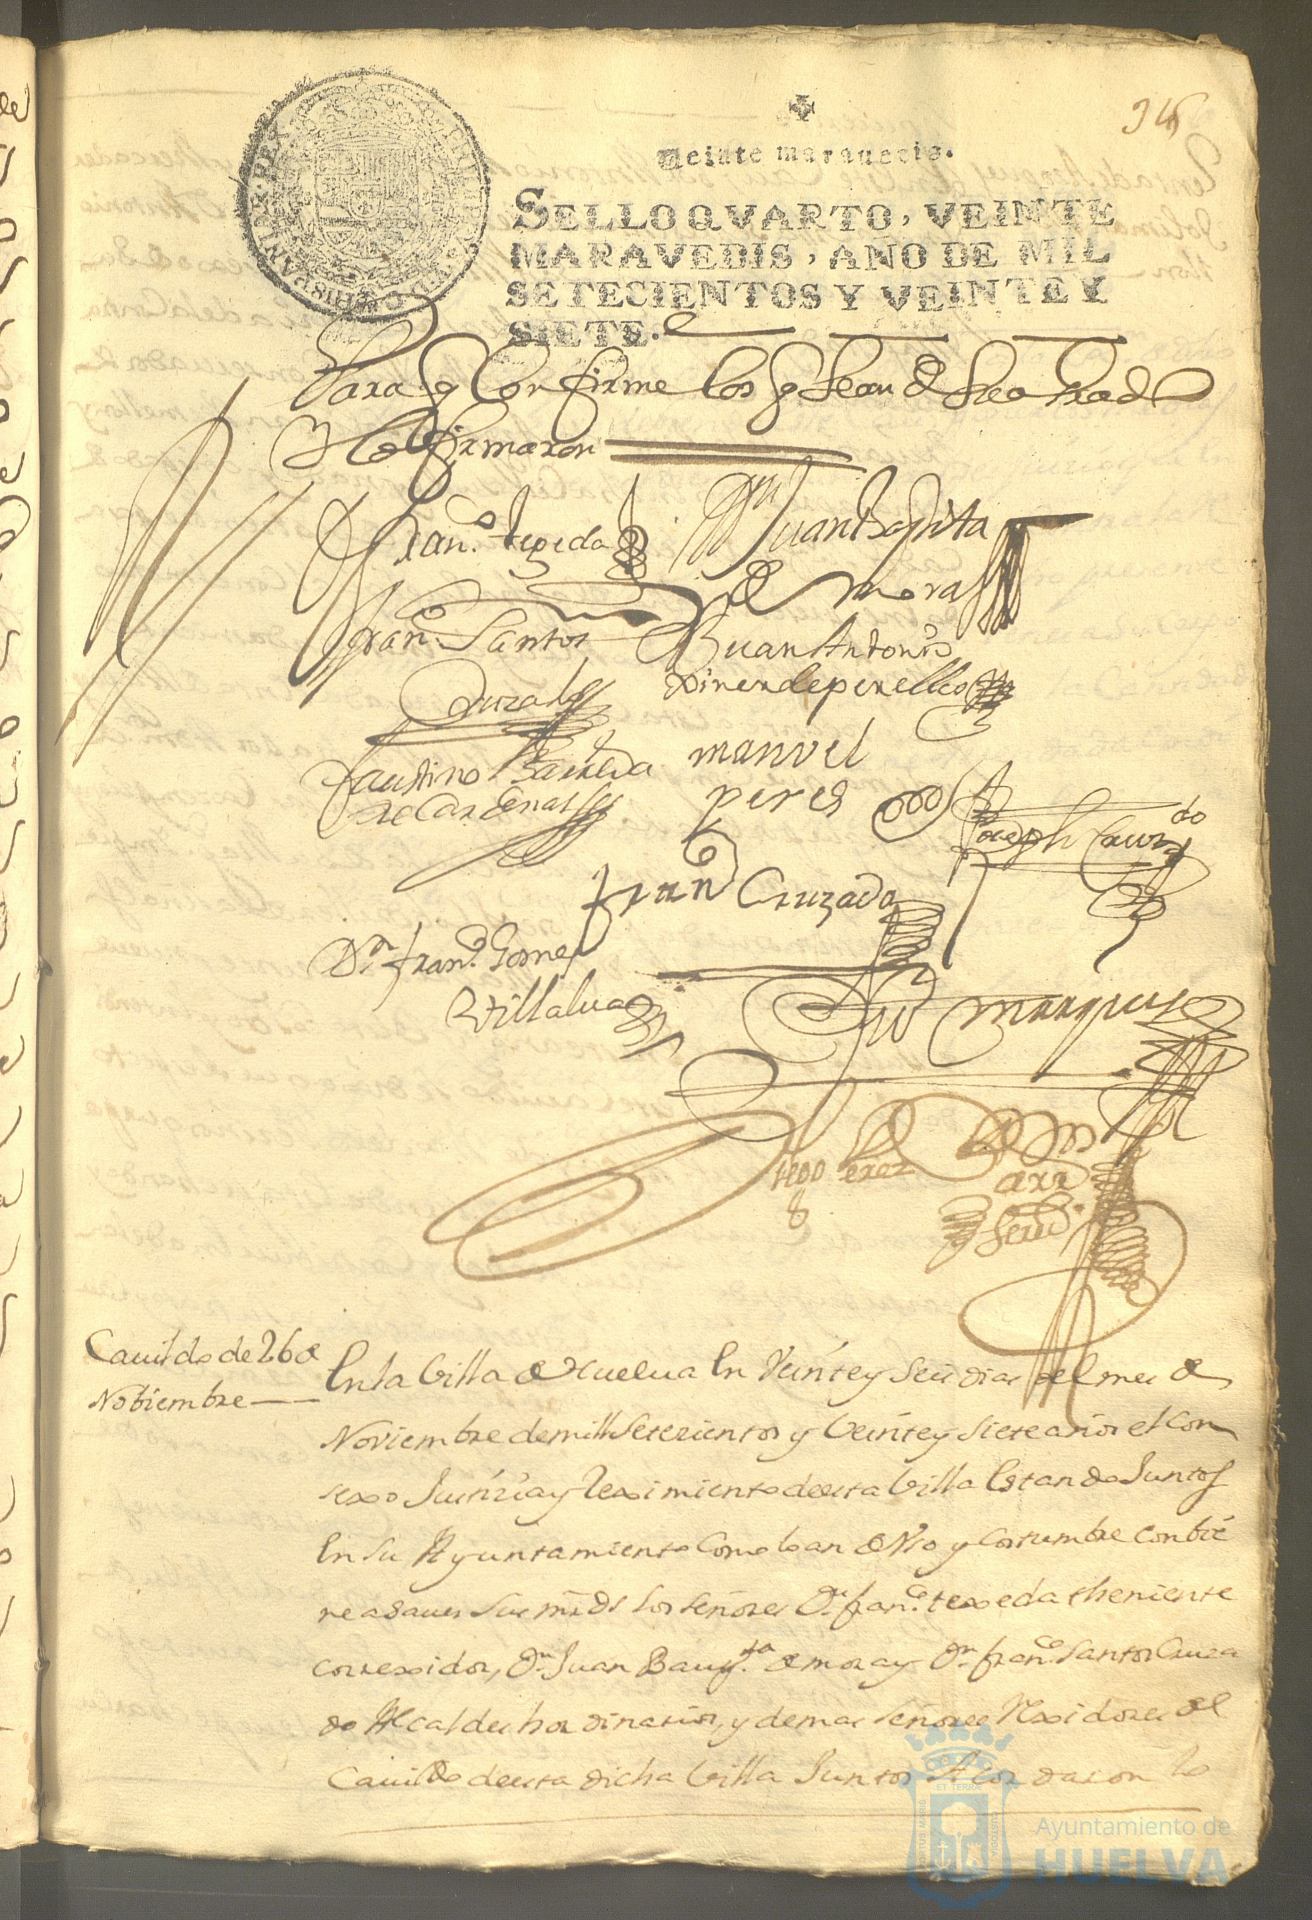 346
Veinte maravedis.
SELLO QVARTO, VEINTE
MARAVEDIS, AÑO DE MIL
SETECIENTOS Y VEINTE Y
SIETE.
Para q Confirme los q sean
lo firmaron
Franco. texeda
Dn Juan Baptista
de mora
Franco. Santos
Cruzado
Juan Antonio
ximenez de perellos
Faustino Barreda
de Cardenas
manuel
peres
Joseph Cruzdo
Franco Cruzado
Dn franco. Gomez
Villalua
marquez
Diego Perez
Cauildo de 26 de
Nobiembre
En la Villa de Huelua En Veinte y Seis dias del mes de
Noviembre de mill Setezientos y Veinte y siete años el Con
sexo Justizia y Reximiento desta Villa Estando Juntos
En su Ayuntamiento Como lo an de Vso y Costumbre conbie
ne a sauer Sus mrds los señores Dn franco. texeda theniente
correxidor, Dn Juan Baupta. de mora y Dn franco. Santos Cruza
do Alcaldes hordinarios, y demas señores Rexidores del
Cauildo desta dicha Villa Juntos Acordaron lo
Ayuntamiento de
HUELVA